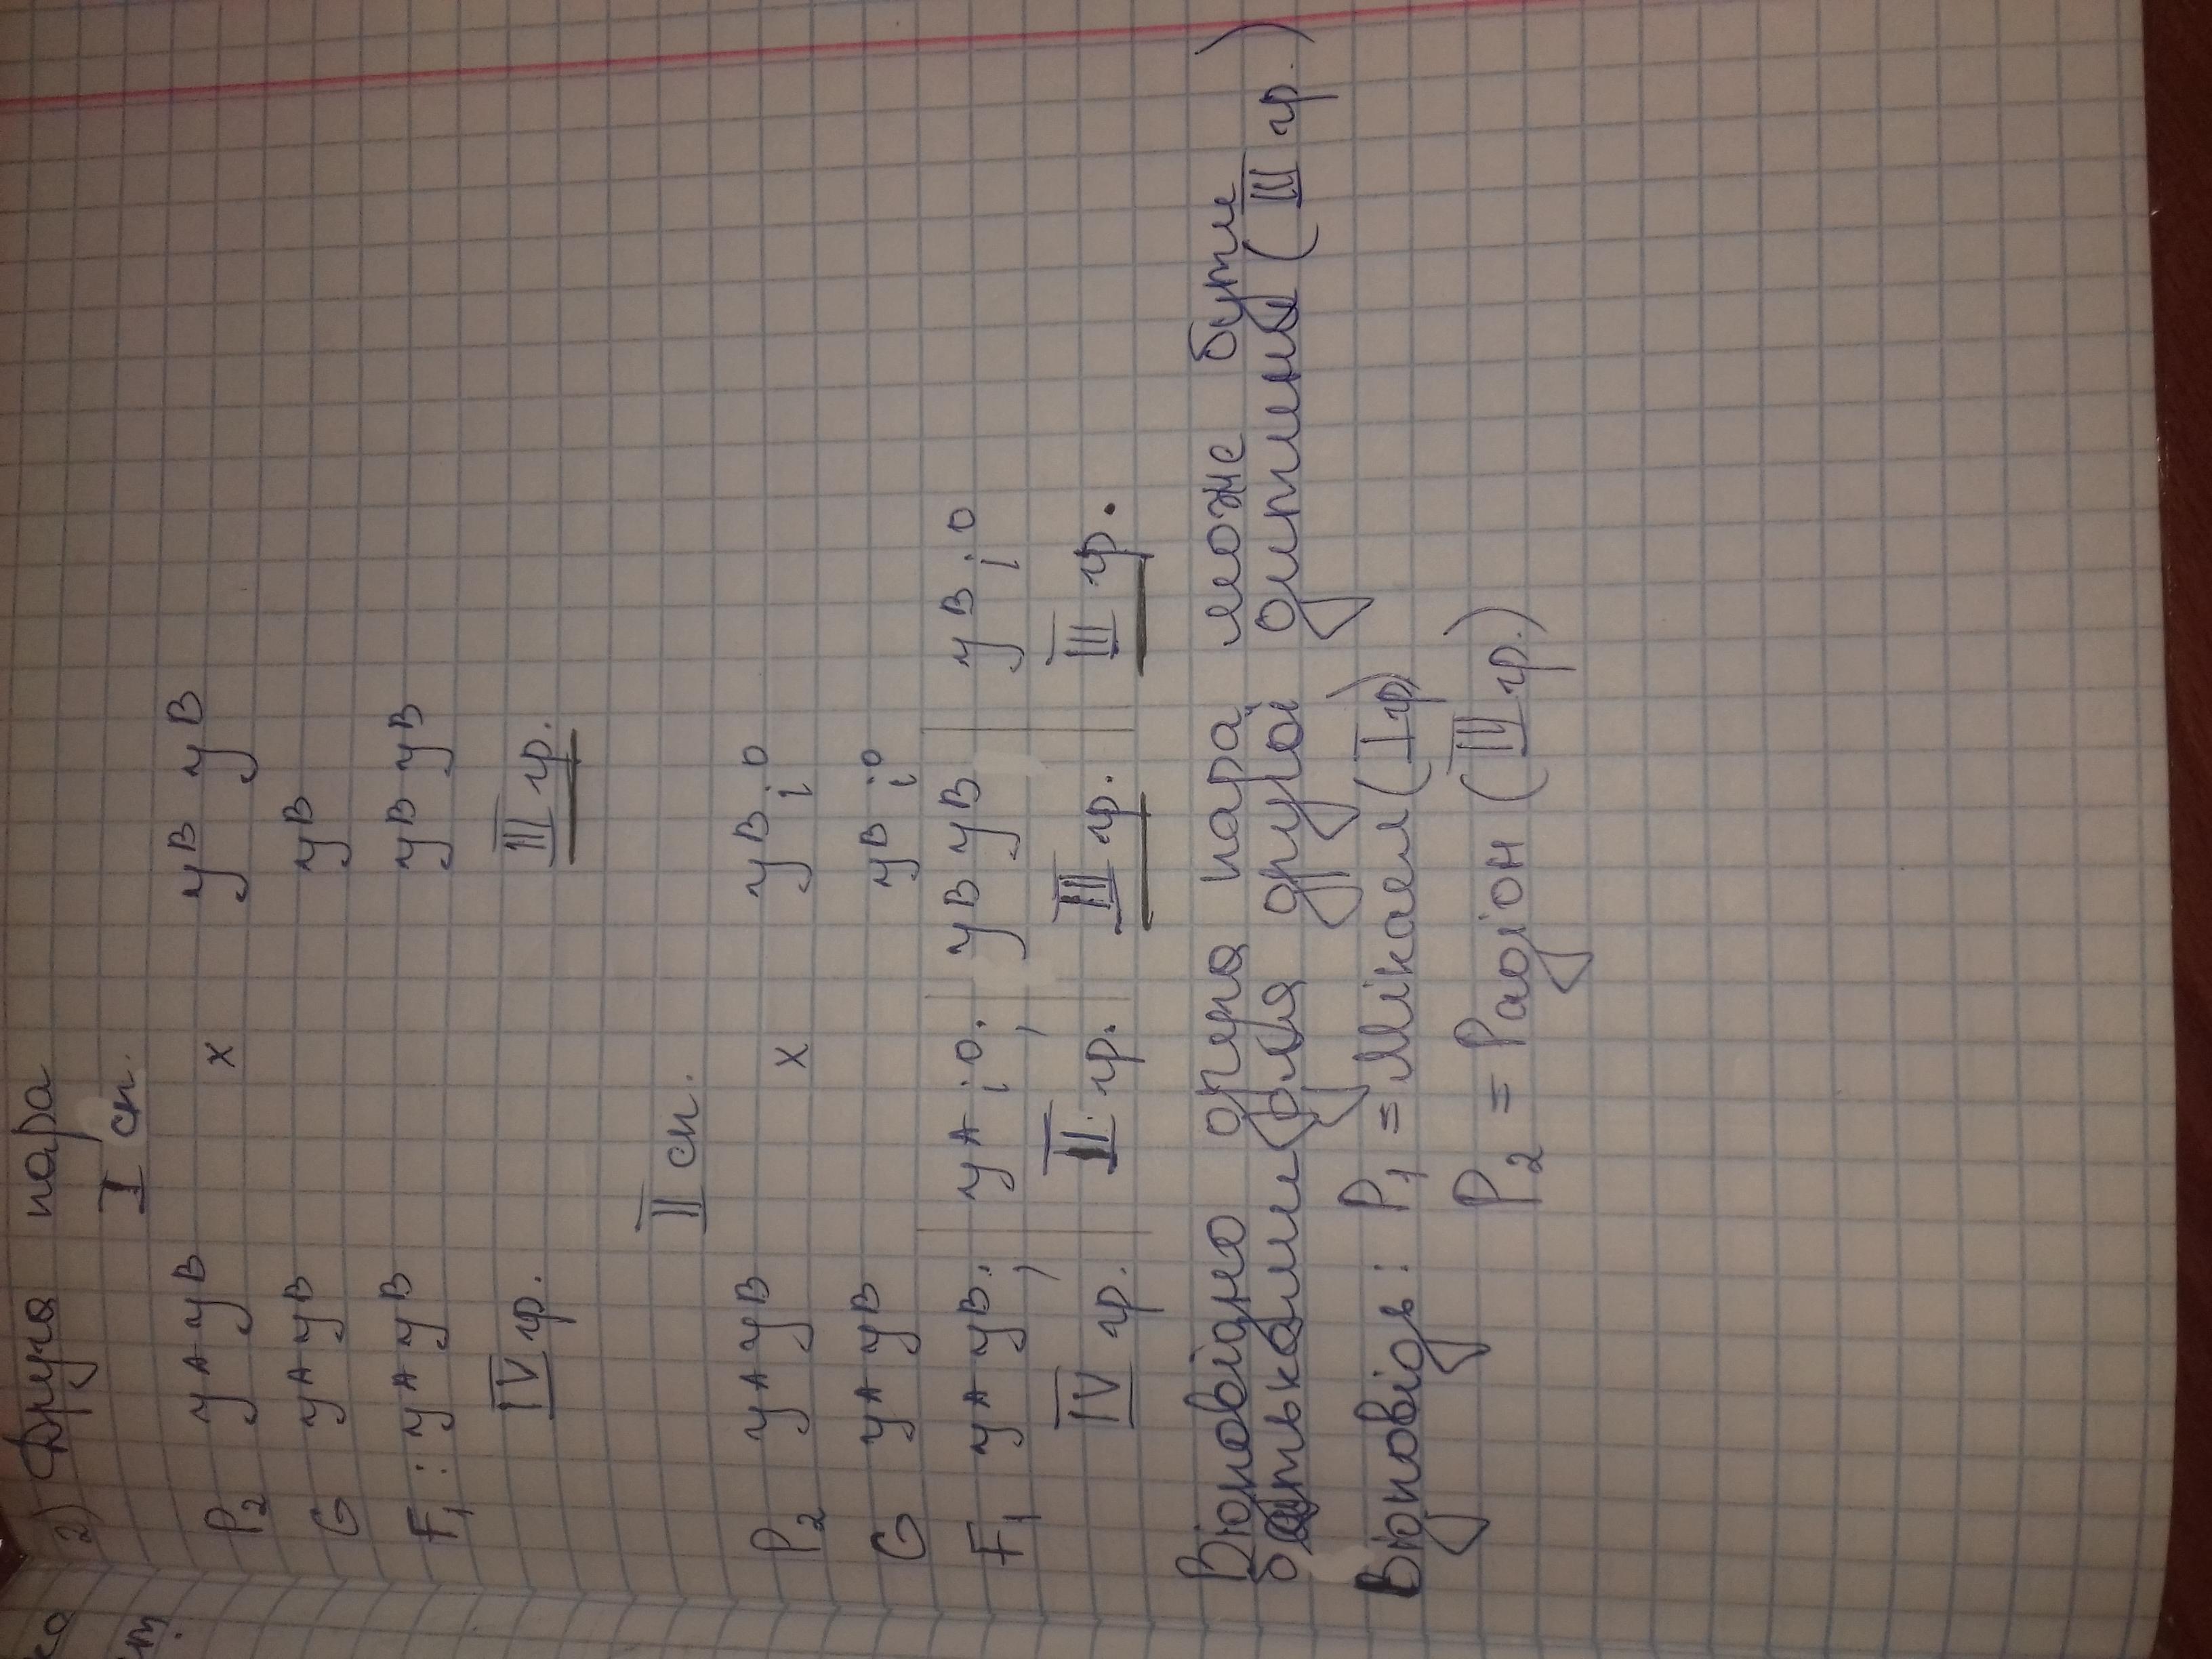 2) Друга пара
I сп.
P2 yA yB x yB yB
G yA yB yB
F1: yA yB yB yB
IV гр. III гр.
II сп.
P2 yA yB x yB i0
G yA yB yB i0
F1 yA yB; yA i0; yB yB yB i0
IV гр. II гр. III гр. III гр.
Відповідно друга пара може бути
батьками для другої дитини (III гр.)
Відповідь: P1 = Мікаел (I гр)
P2 = Радіон (III гр.)